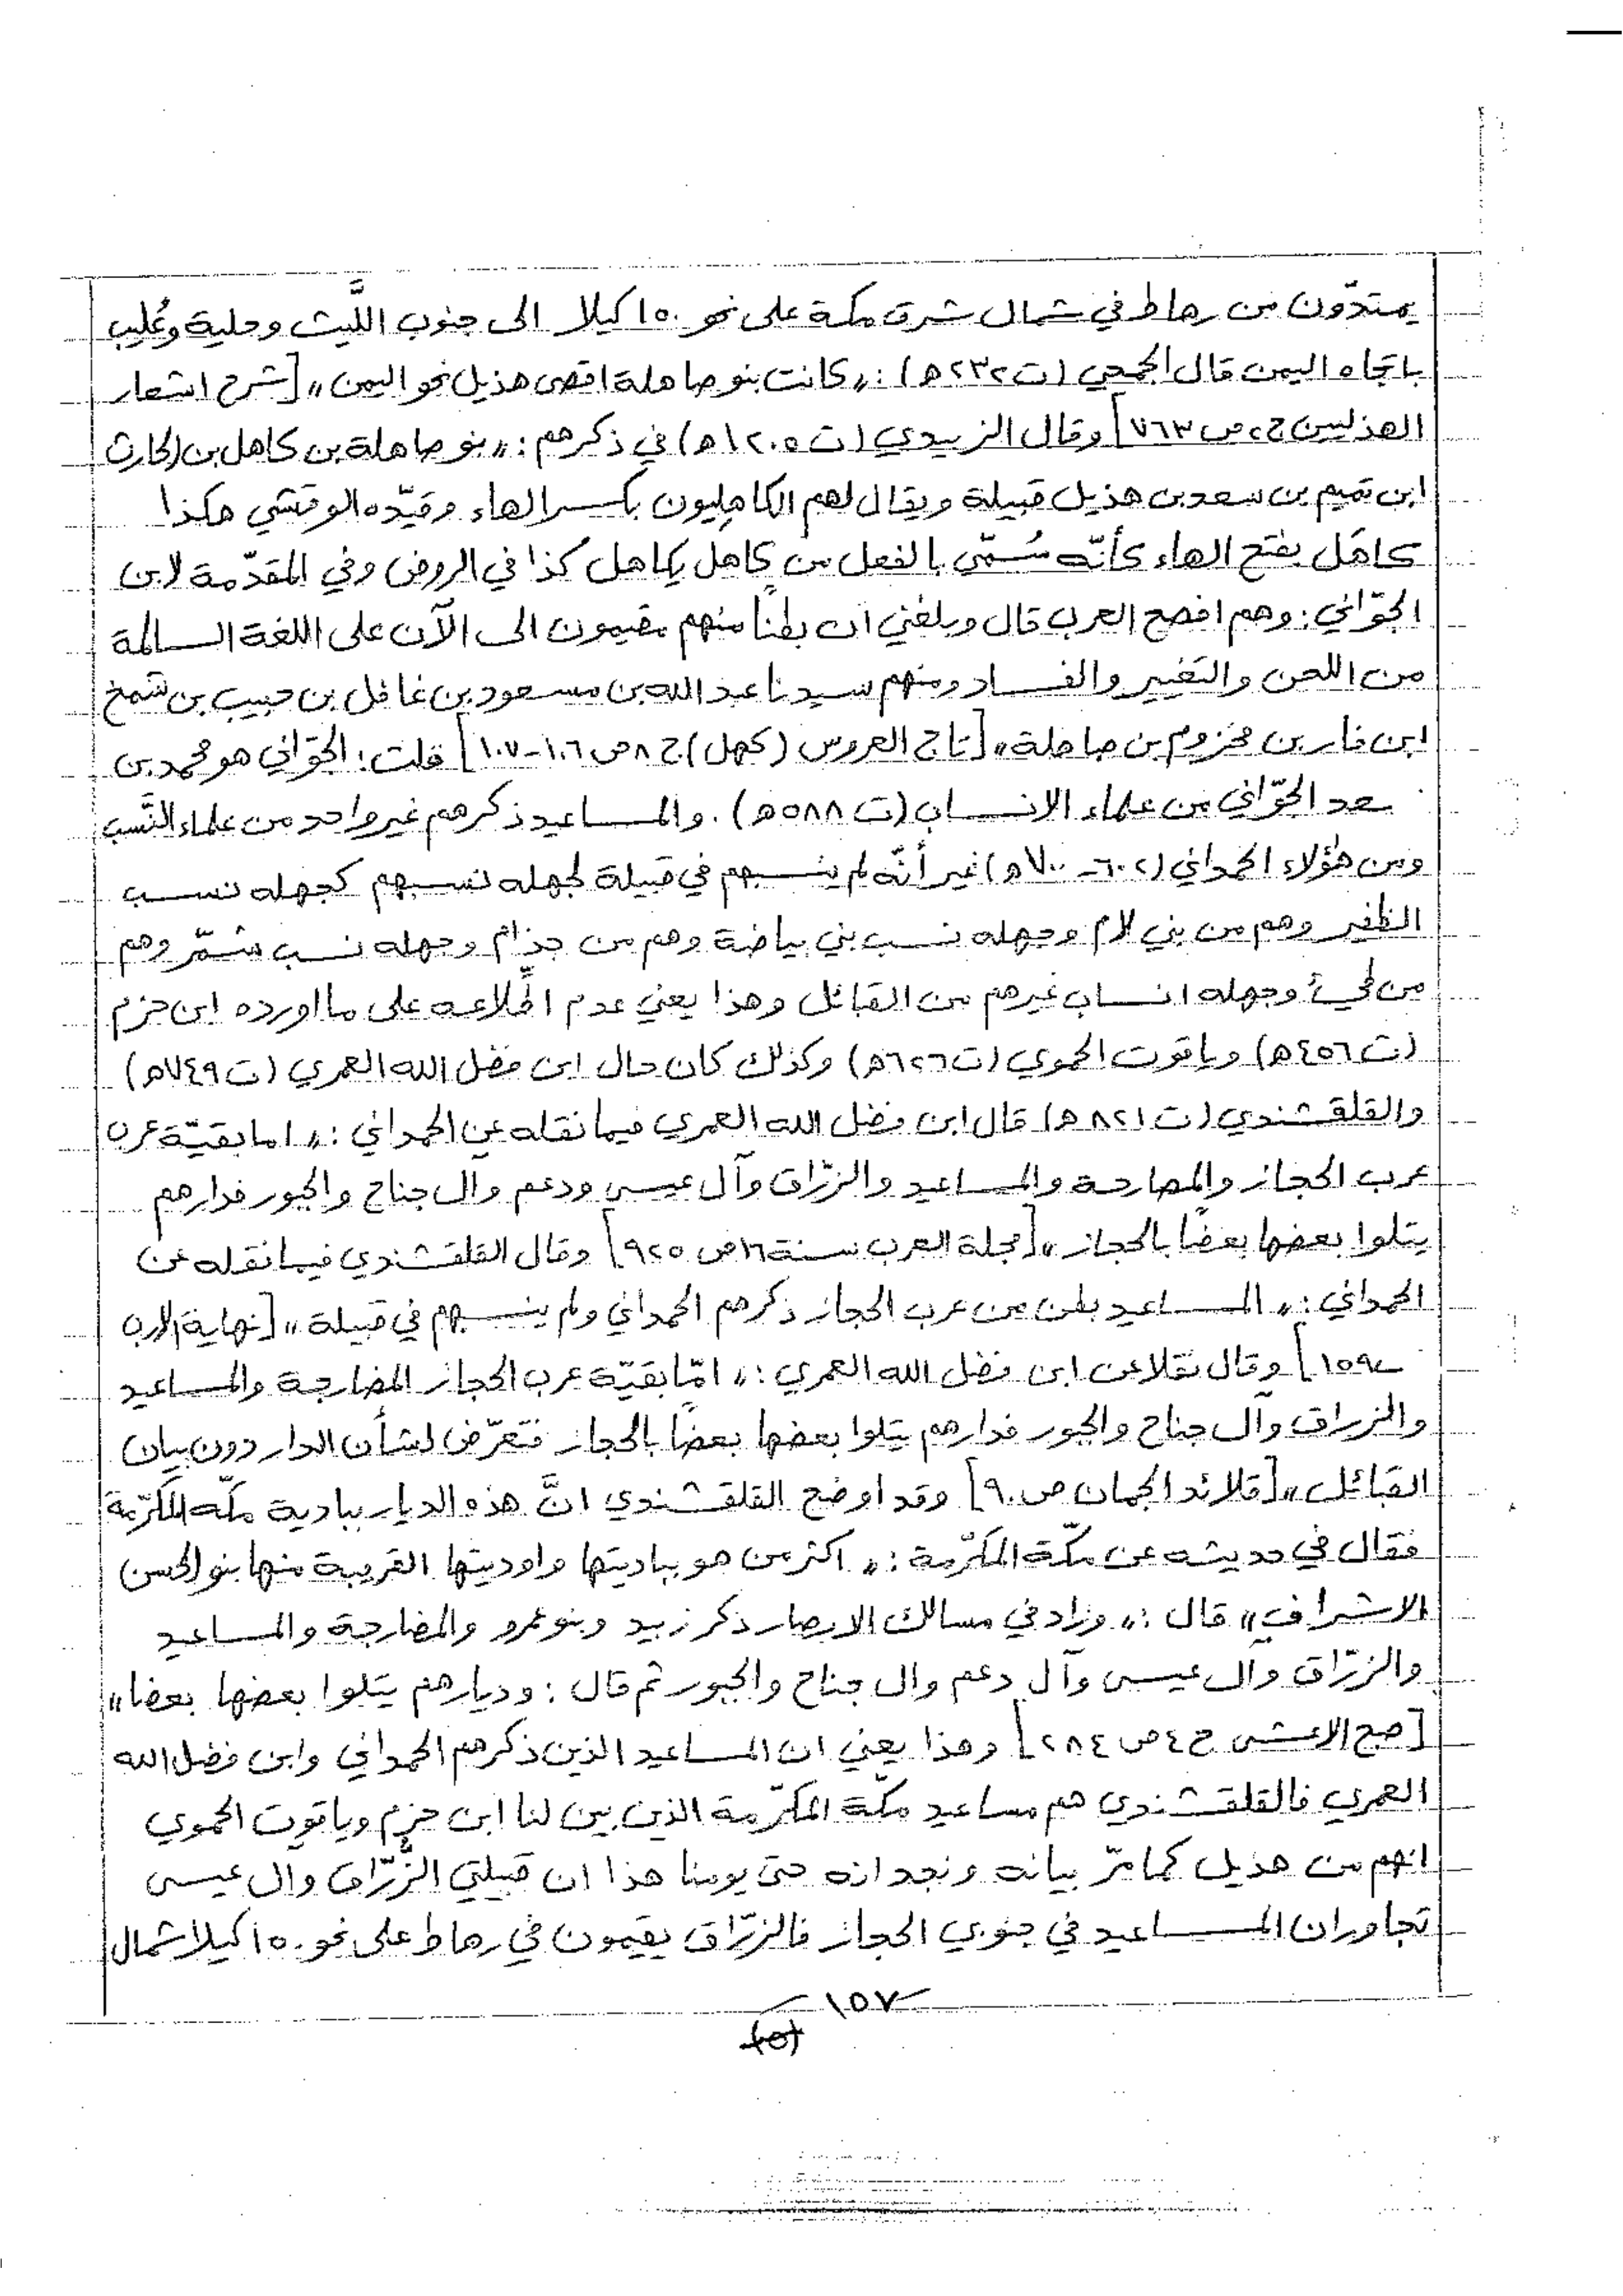 يمتدّون من رهاط في شمال شرق مكة على نحو ١٥٠ كيلا الى جنوب اللَّيث وحلية وعُليب
باتجاه اليمن قال الجمحي (ت ٢٣٢ه) : «كانت بنو صاهلة اقصى هذيل نحو اليمن» [شرح اشعار
الهذليين ج٢ ص ٧٦٣] وقال الزبيدي (ت ١٢٠٥ه) في ذكرهم : «بنو صاهلة بن كاهل بن الحارث
ابن تميم بن سعد بن هذيل قبيلة ويقال لهم الكاهِليون بكسر الهاء وقيّده الوقشي هكذا
كاهَل بفتح الهاء كأنّه سُمّي بالفعل من كاهل يكاهل كذا في الروض وفي المقدّمة لابن
الجوّاني : وهم افصح العرب قال وبلغني ان بطنًا منهم مقيمون الى الآن على اللغة السالمة
من اللحن والتغيير والفساد ومنهم سيدنا عبد الله بن مسعود بن غافل بن حبيب بن شمخ
ابن فار بن مخزوم بن صاهلة» [تاج العروس (كهل) ج ٨ ص ١٠٦-١٠٧] قلت : الجوّاني هو محمد بن
سعد الجوّاني من علماء الانساب (ت ٥٨٨ه) . والمساعيد ذكرهم غير واحد من علماء النَّسب
ومن هؤلاء الحمداني (٦٠٢ - ٧٠٠ه) غير أنّه لم ينسبهم في قبيلة لجهله نسبهم كجهله نسب
الظفير وهم من بني لام وجهله نسب بني بياضة وهم من جذام وجهله نسب شمّر وهم
من طيّء وجهله انساب غيرهم من القبائل وهذا يعني عدم اطّلاعه على ما اورده ابن حزم
(ت ٤٥٦ه) وياقوت الحموي (ت ٦٢٦ه) وكذلك كان حال ابن فضل الله العمري (ت ٧٤٩ه)
والقلقشندي (ت ٨٢١ه) قال ابن فضل الله العمري فيما نقله عن الحمداني : «اما بقيّة عرب
عرب الحجاز والمصارحة والمساعيد والزرّاق وآل عيسى ودعم وال جناح والجبور فدارهم
يتلوا بعضها بعضًا بالحجاز» [مجلة العرب سنة ١٦ ص ٩٢٥] وقال القلقشندي فيما نقله عن
الحمداني : «المساعيد بطن من عرب الحجاز ذكرهم الحمداني ولم ينسبهم في قبيلة» [نهاية الارب
١٥٩] وقال نقلا عن ابن فضل الله العمري : «امّا بقيّة عرب الحجاز المضارجة والمساعيد
والزراق وآل جناح والجبور فدارهم يتلوا بعضها بعضًا بالحجاز فتعرّض لشأن الدار دون بيان
القبائل» [قلائد الجمان ص ٩٠] وقد اوضح القلقشندي انَّ هذه الديار ببادية مكّه المكرّمة
فقال في حديثه عن مكّة المكرّمة : «اكثر من هو بباديتها واوديتها القريبة منها بنو الحسن
الاشراف» قال : «وزاد في مسالك الابصار ذكر زبيد وبنو عمرو والمضارجة والمساعيد
والزرّاق وآل عيسى وآل دعم وال جناح والجبور ثم قال : وديارهم يتلوا بعضها بعضا»
[صبح الاعشى ج ٤ ص ٢٨٤] وهذا يعني ان المساعيد الذين ذكرهم الحمداني وابن فضل الله
العمري فالقلقشندي هم مساعيد مكّة المكرّمة الذين بين لنا ابن حزم وياقوت الحموي
انهم من هذيل كما مرّ بيانه ونجد انه حتى يومنا هذا ان قبيلتي الزُّرّاق وال عيسى
تجاوران المساعيد في جنوبي الحجاز فالزرّاق يقيمون في رهاط على نحو ١٥٠ كيلا شمال
١٥٧